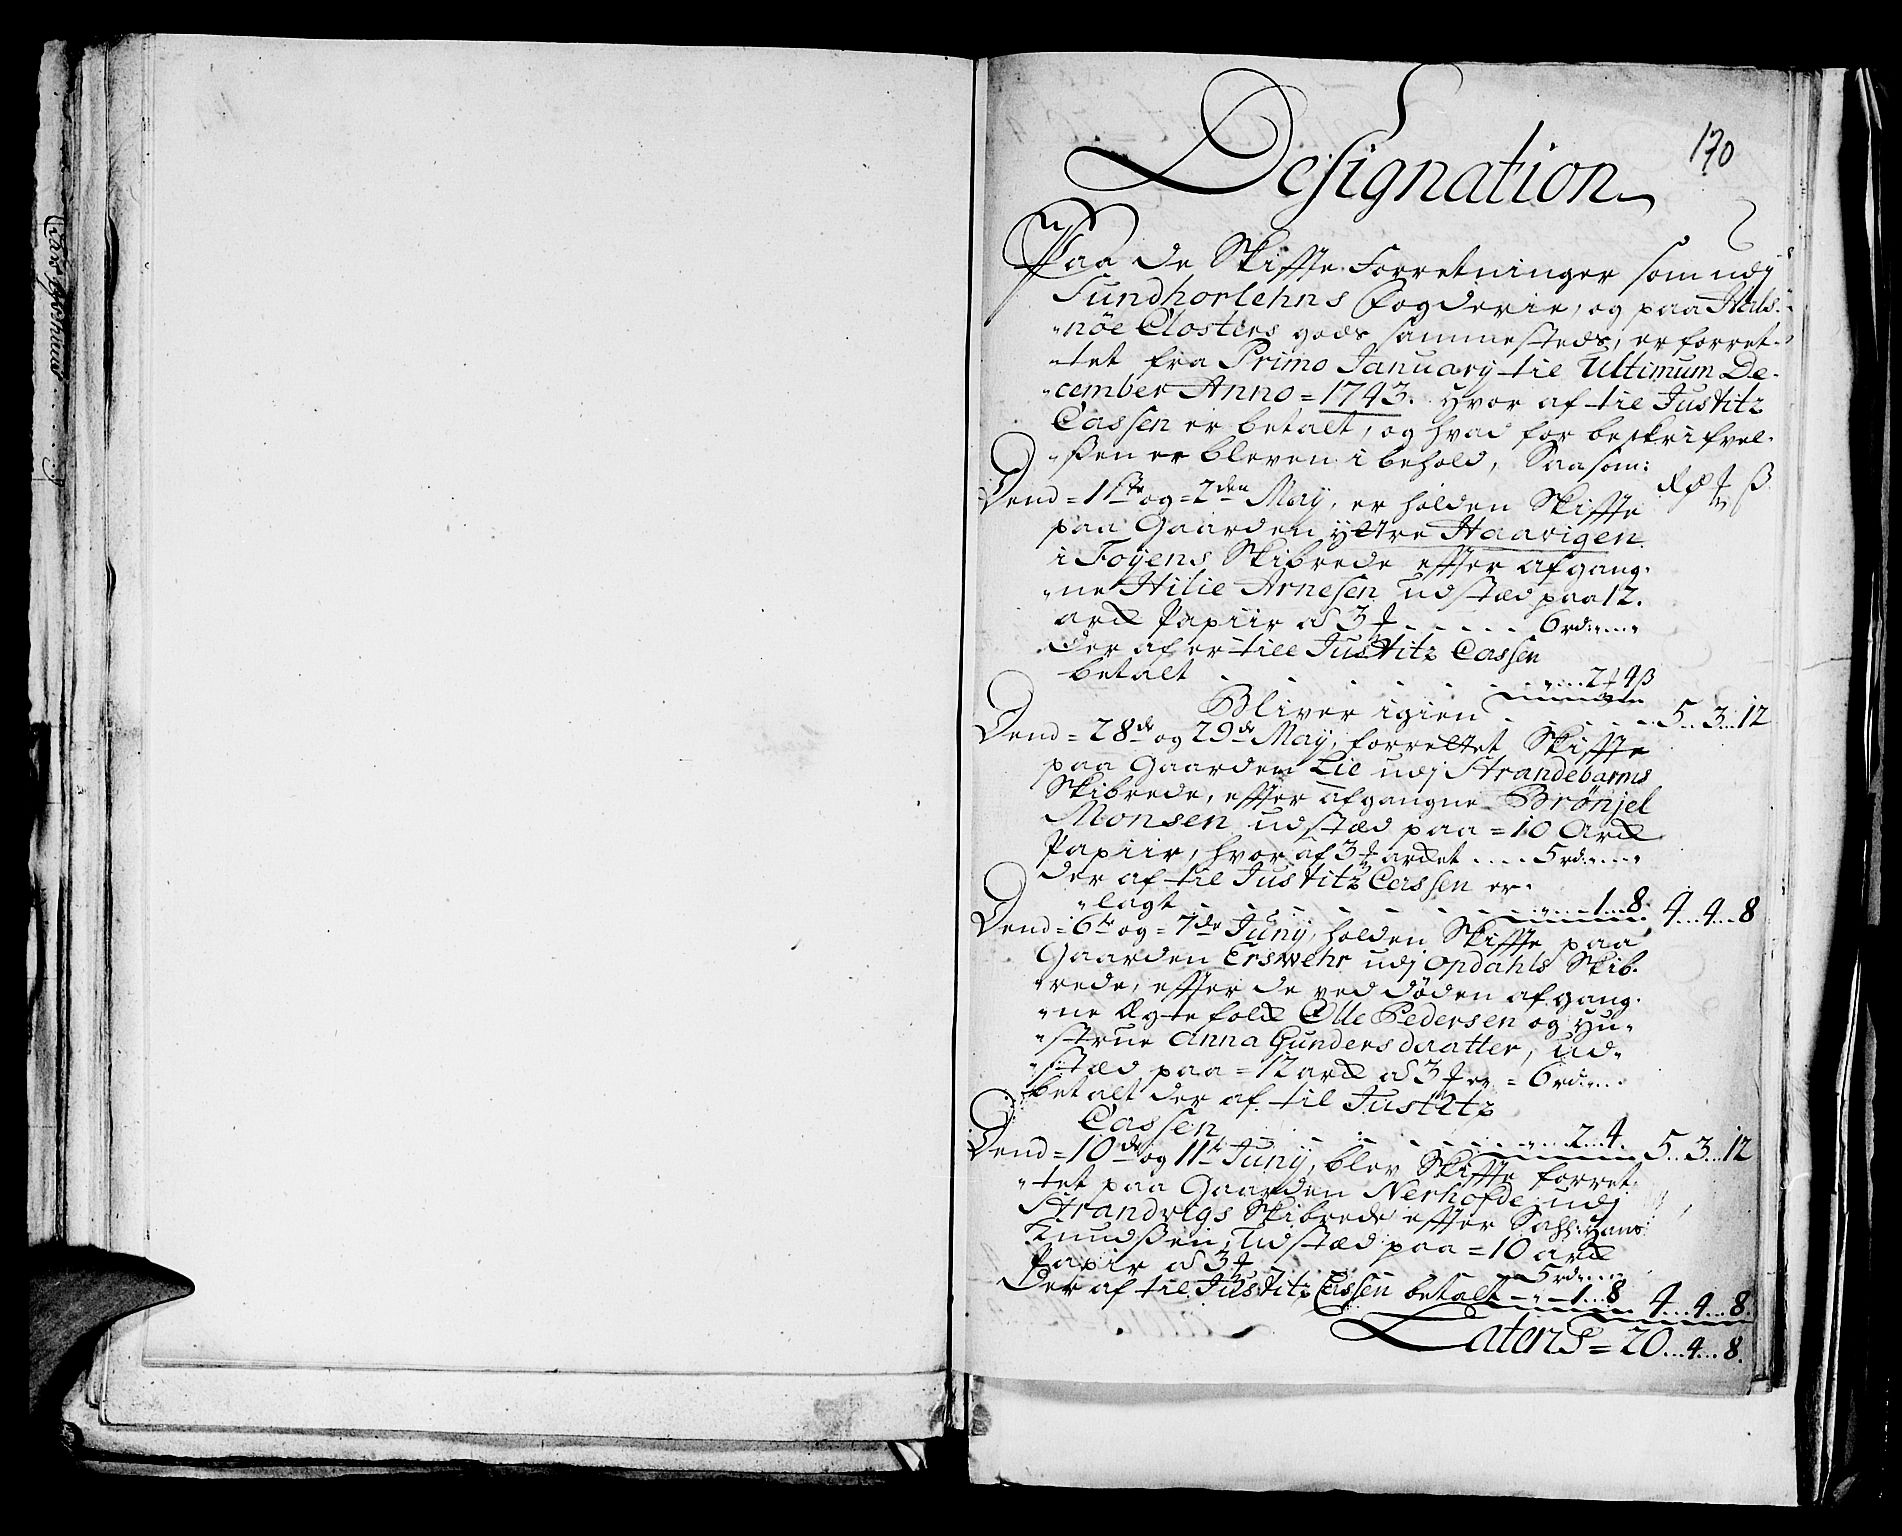 170
Designation
Paa de Skiffte Forretninger som udj
Sundhorlehns fogderie, og paa Hals-
nöe Closters gods sammesteds, er forret-
tet fra Primo Januarij til Ultimum De-
cember Anno = 1743. Hvor af til Justitz
Cassen er betalt, og hvad for beskrifvel-
ßen er bleven i behold, Saasom:
Dend = 1ste og = 2den Maij, er holden Skiffte
paa Gaarden yttre Haavigen
i Foyens Skibrede effter afgang-
ne Hilie Arnesen udstæd paa 12.
ark Papiir à 3 ... 6 rd
Der af er till Justitz Cassen
betalt ... 2 4 ß
Bliver igien ... 5..3..12
Dend = 28de og 29de Maij, forrettet Skiffte
paa Gaarden Lie udj Strandebarms
Skibrede, effter afgangne Brönjel
Monsen udstæd paa = 10 Ark
Papiir, hvor af 3 arket .... 5 rd
der af til Justitz Cassen er-
lagt ... 1..8. 4...4...8
Dend = 6te og = 7de Junij, holden Skiffte paa
Gaarden Erswehr udj Opdahls Skib-
rede, effter de ved döden afgang-
ne Ægtefolk Olle Pedersen og Hu-
strue Anna Gundersdaatter, ud-
stæd paa = 12 ark à 3 er = 6 rd
betalt der af til Justitz
Cassen ... 2...4. 5..3...12
Dend = 10de og 11te Junij, blev Skiffte forret-
tet paa Gaarden Nerhofde udj
Strandvigs Skibrede effter Sahl: Hans
Knudßen, Udstæd paa = 10 ark
Papir à 3 ... 5 rd
Der af til Justitz Cassen betalt ... 1...8 4...4...8.
Lateris = 20...4...8.